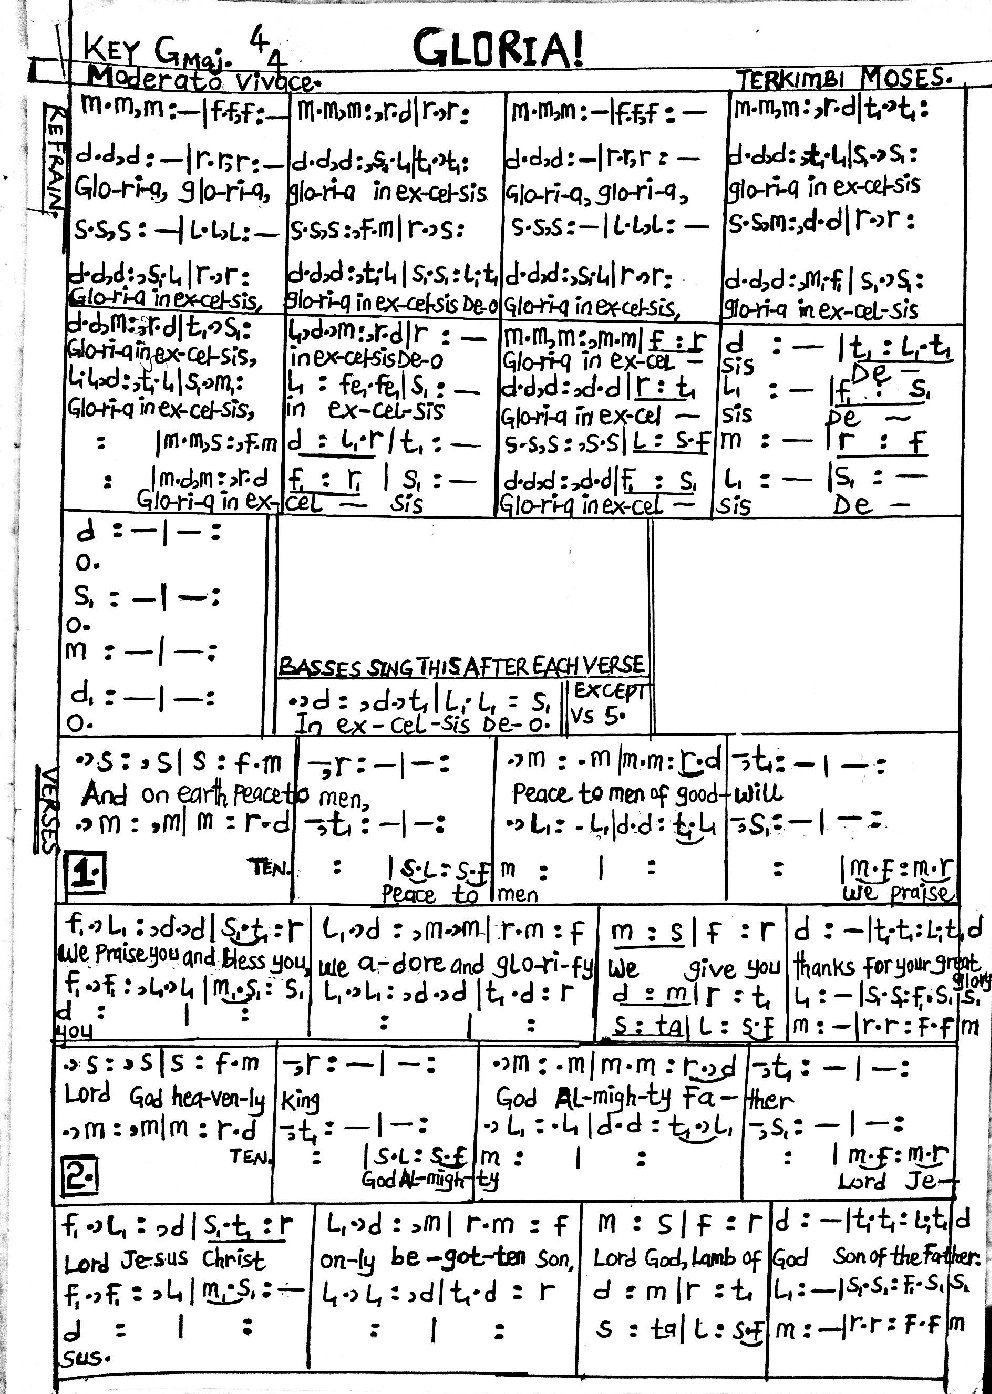 GLORIA!
KEY G Maj. 4/4
Moderato Vivace.
TERKIMBI MOSES.
REFRAIN.
m.m,m:—|f.f,f:— m.m,m:,r.d|r.,r: m.m,m:—|f.f,f:— m.m,m:,r.d|t₁.,t₁:
d.d,d:—|r.r,r:— d.d,d:,s₁.l₁|t₁.,t₁: d.d,d:—|r.r,r:— d.d,d:,t₁.l₁|s₁.,s₁:
Glo-ri-a, glo-ri-a, glo-ri-a in ex-cel-sis Glo-ri-a, glo-ri-a, glo-ri-a in ex-cel-sis
s.s,s:—|l.l,l:— s.s,s:,f.m|r.,s: s.s,s:—|l.l,l:— s.s,m:,d.d|r.,r:
d.d,d:,s₁.l₁|r.,r: d.d,d:,t₁.l₁|s₁.s₁:l₁.t₁ d.d,d:,s₁.l₁|r.,r: d.d,d:,m.f₁|s₁.,s₁:
Glo-ri-a in ex-cel-sis, glo-ri-a in ex-cel-sis De-o Glo-ri-a in ex-cel-sis, glo-ri-a in ex-cel-sis
d.d,m:,r.d|t₁.,s₁: l₁.,d.,m:,r.d|r:— m.m,m:,m.m|f:r d:—|t₁:l₁.t₁
Glo-ri-a in ex-cel-sis, in ex-cel-sis De-o Glo-ri-a in ex-cel— sis De—
l₁.l₁,d:,t₁.l₁|s₁.,m₁: l₁:fe₁.fe₁|s₁:— d.d,d:,d.d|r:t₁ l₁:—|f₁:s₁
Glo-ri-a in ex-cel-sis, in ex-cel-sis Glo-ri-a in ex-cel— sis De—
:|m.m,s:,f.m d:l₁.r|t₁:— s.s,s:,s.s|l:s.f m:—|r:f
:|m.d,m:,r.d f₁:r₁|s₁:— d.d,d:,d.d|f₁:s₁ l₁:—|s₁:—
Glo-ri-a in ex-cel— sis Glo-ri-a in ex-cel— sis De—
d:—|—:
o.
s₁:—|—:
o.
m:—|—:
d₁:—|—:
o.
BASSES SING THIS AFTER EACH VERSE
.,d:,d.,t₁|l₁.l₁:s₁ EXCEPT
In ex-cel-sis De-o. Vs 5.
VERSES
.,s:,s|s:f.m —,r:—|—: .,m:.m|m.m:r.d —,t₁:—|—:
And on earth Peace to men, Peace to men of good-will
.,m:,m|m:r.d —,t₁:—|—: .,l₁:.l₁|d.d:t₁.l₁ —,s₁:—|—:
1. TEN. :|s.l:s.f m:|: :|m.f:m.r
Peace to men we praise
f₁.,l₁:,d.,d|s₁.t₁:r l₁.,d:,m.,m|r.m:f m:s|f:r d:—|t₁.t₁:l₁.t₁ d
We Praise you and bless you, we a-dore and glo-ri-fy We give you thanks for your great glory
f₁.,f₁:,l₁.,l₁|m₁.s₁:s₁ l₁.,l₁:,d.,d|t₁.d:r d:m|r:t₁ l₁:—|s₁.s₁:f₁.s₁ s₁
d:|: :|: s:ta|l:s.f m:—|r.r:f.f m
you
.,s:,s|s:f.m —,r:—|—: .,m:.m|m.m:r.,d —,t₁:—|—:
Lord God hea-ven-ly King God Al-migh-ty Fa-ther
.,m:,m|m:r.d —,t₁:—|—: .,l₁:.l₁|d.d:t₁.,l₁ —,s₁:—|—:
2. TEN. :|s.l:s.f m:|: :|m.f:m.r
God Al-migh-ty Lord Je-
f₁.,l₁:,d|s₁.t₁:r l₁.,d:,m|r.m:f m:s|f:r d:—|t₁.t₁:l₁.t₁ d
Lord Je-sus Christ on-ly be-got-ten Son, Lord God, Lamb of God Son of the Father.
f₁.,f₁:,l₁|m₁.s₁:— l₁.,l₁:,d|t₁.d:r d:m|r:t₁ l₁:—|s₁.s₁:f₁.s₁ s₁
d:|: :|: s:ta|l:s.f m:—|r.r:f.f m
sus.